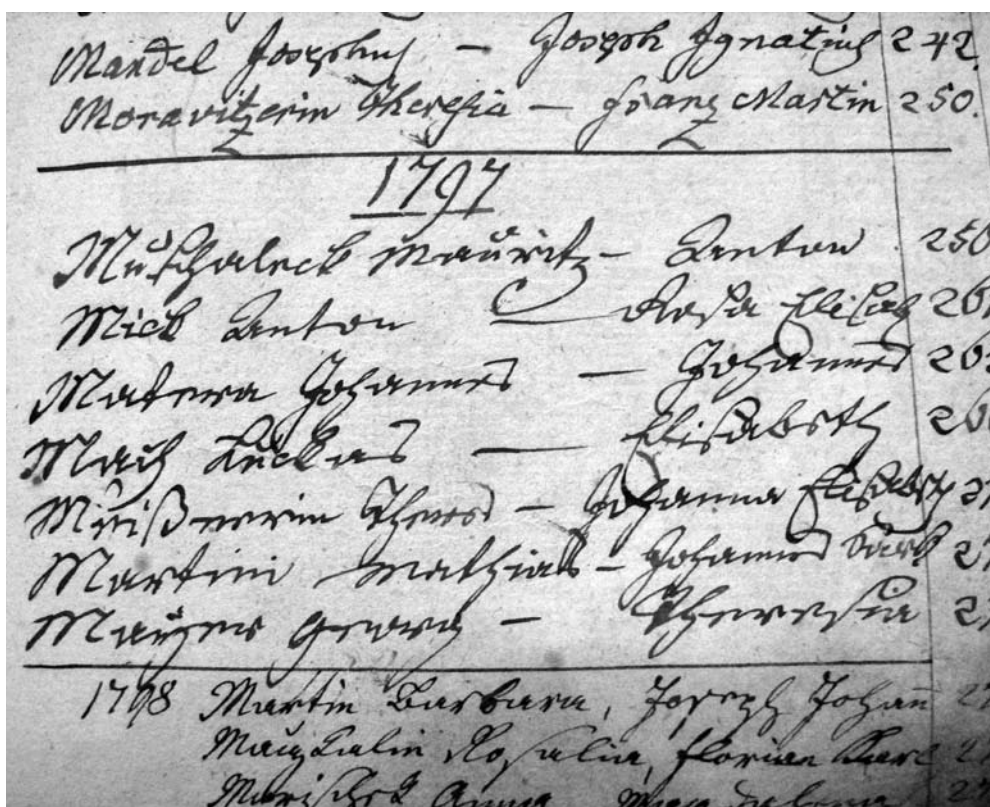 Mandel Josephus — Joseph Ignatius 242.
Moravitzerin Theresia — Franz Martin 250.
1797
Muschaleck Mauritz — Anton 250
Mick Anton — Rosa Elisab
Matera Johannes — Johannes
Mach Luckas — Elisabeth
Meißnerin Theres — Johanna Elisabeth
Martini Mathias — Johannes
Mayer Georg — Theresia
1798 Martin Barbara, Joseph Johan̅
Rosalia, Florian Karl
Anna